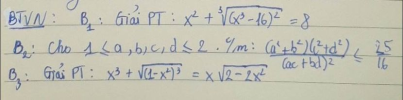 BTVN: B₁: Giải PT: x² + ∛((x³-16)²) = 8
B₂: Cho 1 ≤ a, b, c, d ≤ 2. C/m: (a²+b²)(c²+d²)/(ac+bd)² ≤ 25/16
B₃: Giải PT: x³ + √((1-x²)³) = x√(2-2x²)